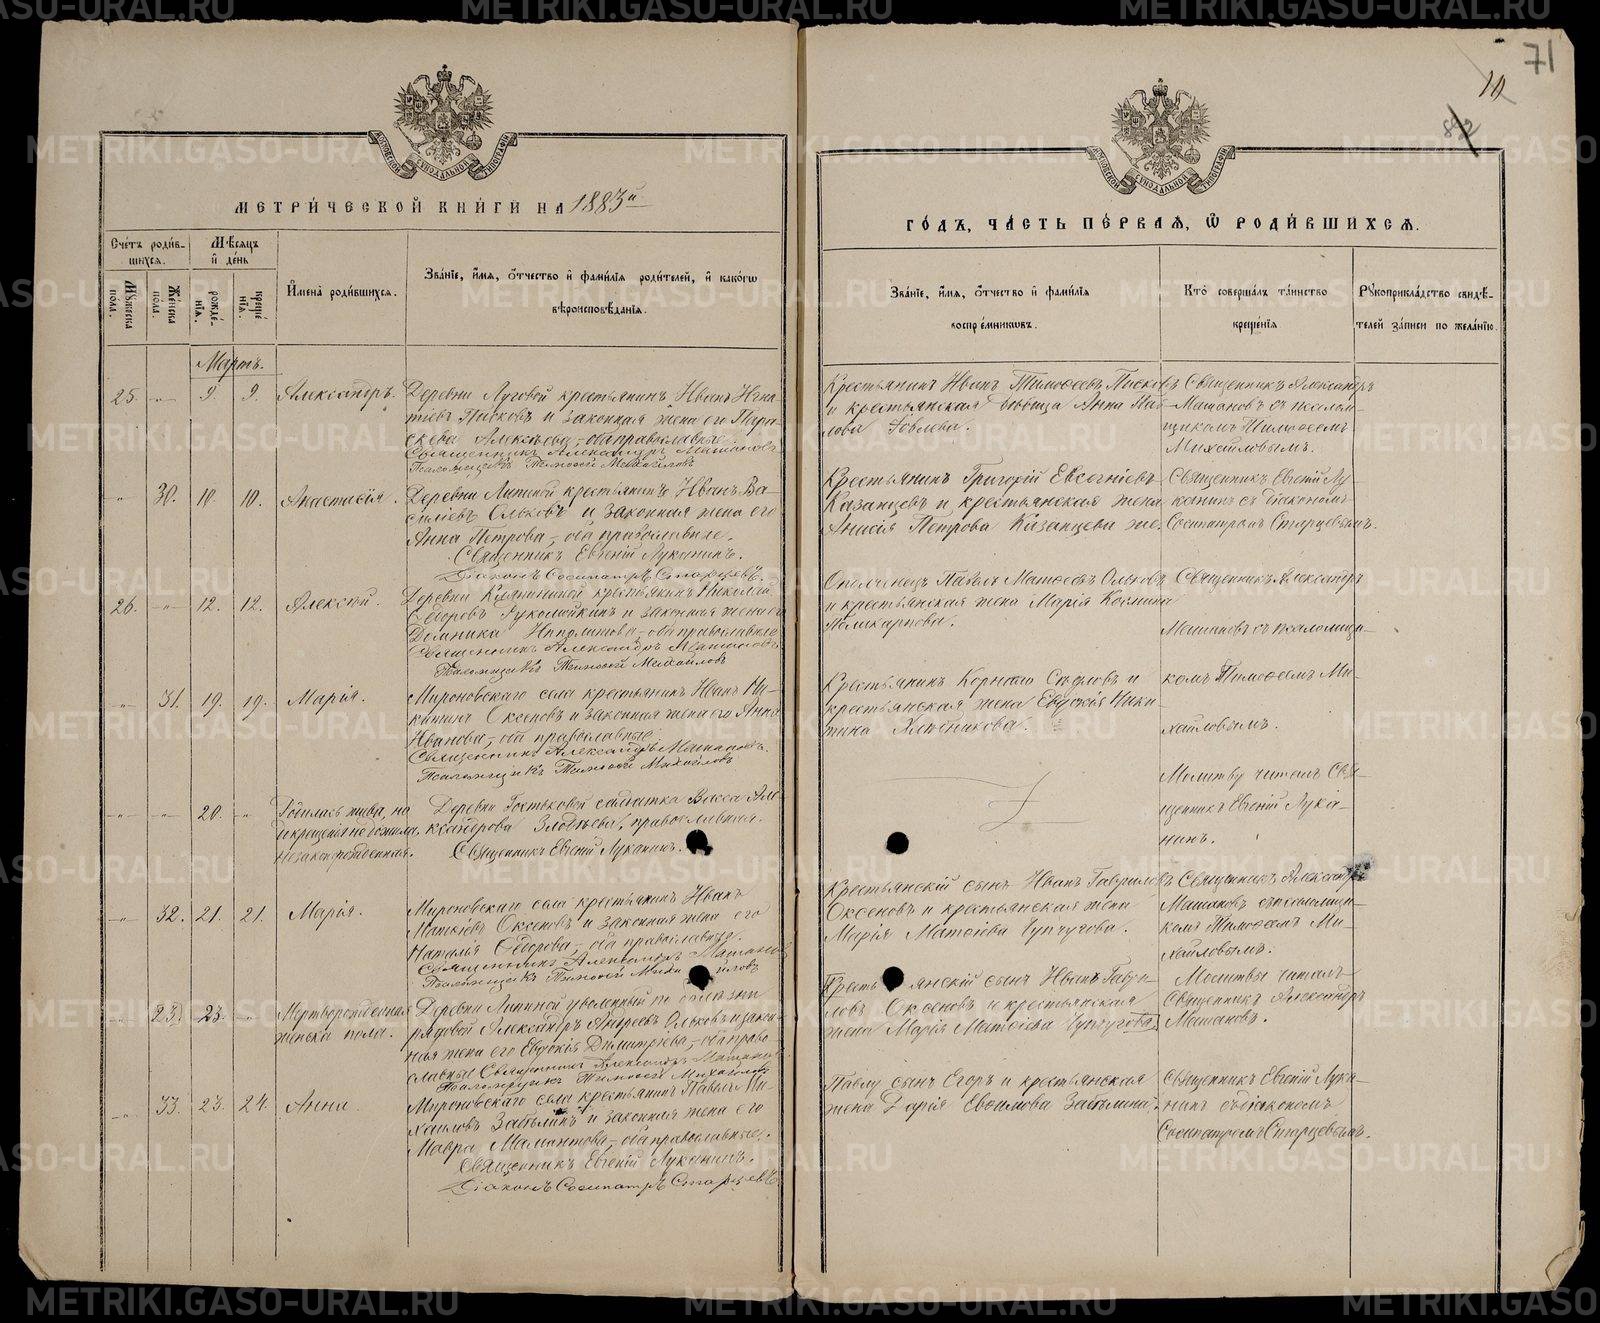 71
10
82
МОСКОВСКОЙ СѴНОДАЛЬНОЙ ТИПОГРАФІИ
МЕТРИ́ЧЕСКОЙ КНИ́ГИ НА 1883й
Сче́тъ роди́в-
шихся.
Мѣ́сяцъ
и҆ де́нь
Мꙋ́жеска
по́ла.
Же́нска
по́ла.
рожде́-
нїя.
креще́-
нїя.
И҆мена̀ роди́вшихся.
Зва́нїе, и҆́мя, ѻ҆́тчество и҆ фами́лїя роди́телей, и҆ како́гѡ
вѣроисповѣ́данїя.
Мартъ.
25. -"- 9. 9. Александръ.
Деревни Луговой крестьянинъ Иванъ Игна-
тіевъ Писковъ и законная жена его Пара-
скева Алексѣева, оба православные.
Священникъ Александръ Машановъ
Псаломщикъ Тимофей Михайловъ
-"- 30. 10. 10. Анастасія.
Деревни Липиной крестьянинъ Иванъ Ва-
силіевъ Ольковъ и законная жена его
Анна Петрова, оба православные.
Священникъ Евгеній Луканинъ.
Діаконъ Сосипатръ Старцевъ.
26. -"- 12. 12. Алексѣй.
крестьянинъ Николай
Ѳедоровъ Рукомойкинъ и законная жена его
Домника Ипполитова, оба православные
Священникъ Александръ Машановъ
Псаломщикъ Тимофей Михайловъ
-"- 31. 19. 19. Марія.
Мироновскаго села крестьянинъ Иванъ Ни-
китинъ Оксеновъ и законная жена его Анна
Иванова, оба православные.
Священникъ Александръ Машановъ.
Псаломщикъ Тимофей Михайловъ
-"- -"- 20. -"- Родилась жива, но
до крещенія не дожила,
незаконорожденная.
Деревни солдатка Васса Але-
ксандрова Злодѣева, православная.
Священникъ Евгеній Луканинъ.
-"- 32. 21. 21. Марія.
Мироновскаго села крестьянинъ Иванъ
Матѳіевъ Оксеновъ и законная жена его
Наталія Ѳедорова, оба православные.
Священникъ Александръ Машановъ
Псаломщикъ Тимофей Михайловъ
-"- 23. 23. -"- Мертворожденный
женска пола.
Деревни Липиной уволенный по болѣзни
рядовой Александръ Андреевъ Ольковъ и закон-
ная жена его Евдокія Димитріева, оба право-
славные Священникъ Александръ Машановъ
Псаломщикъ Тимофей Михайловъ
-"- 33. 23. 24. Анна.
Мироновскаго села крестьянинъ Павелъ Ми-
хаиловъ Забѣлинъ и законная жена его
Мавра Мамонтова, оба православные.
Священникъ Евгеній Луканинъ.
Діаконъ Сосипатръ Старцевъ
МОСКОВСКОЙ СѴНОДАЛЬНОЙ ТИПОГРАФІИ
ГО́ДЪ, ЧА́СТЬ ПЕ́РВАЯ, Ѽ РОДИ́ВШИХСЯ.
Зва́нїе, и҆́мя, ѻ҆́тчество и҆ фами́лїя
воспрїе́мникѡвъ.
Кто̀ соверша́лъ та́инство
креще́нїя
Рꙋкоприкла́дство свидѣ́-
телей за́писи по жела́нїю.
Крестьянинъ Иванъ Тимофеевъ Писковъ
и крестьянская вдовица Анна Пав-
лова
Священникъ Александръ
Машановъ съ псалом-
щикомъ Тимофеемъ
Михайловымъ.
Крестьянинъ Григорій Евсегніевъ
Казанцевъ и крестьянская жена
Анисія Петрова Казанцева же.
Священникъ Евгеній Лу-
канинъ съ діакономъ
Сосипатромъ Старцевымъ.
Ополченецъ Павелъ Матѳеевъ Ольковъ
и крестьянская жена Марія Космина
Поликарпова.
Священникъ Александръ
Машановъ съ псаломщи-
комъ Тимофеемъ Ми-
хайловымъ.
Крестьянинъ Сѣдловъ и
крестьянская жена Евдокія Ники-
тина
Молитву читалъ Свя-
щенникъ Евгеній Лука-
нинъ.
Крестьянскій сынъ Иванъ Гавриловъ
Оксеновъ и крестьянская жена
Марія Матѳіева Чупчугова.
Священникъ Александръ
Машановъ съ псаломщи-
комъ Тимофеемъ Ми-
хайловымъ.
Крестьянскій сынъ Иванъ Гаври-
ловъ Оксеновъ и крестьянская
жена Марія Матѳіева Чупчугова.
Молитвы читалъ
Священникъ Александръ
Машановъ.
Павлу сынъ Егоръ и крестьянская
жена Дарія Евѳимова Забѣлина.
Священникъ Евгеній Лука-
нинъ съ діакономъ
Сосипатромъ Старцевымъ.
METRIKI.GASO-URAL.RU